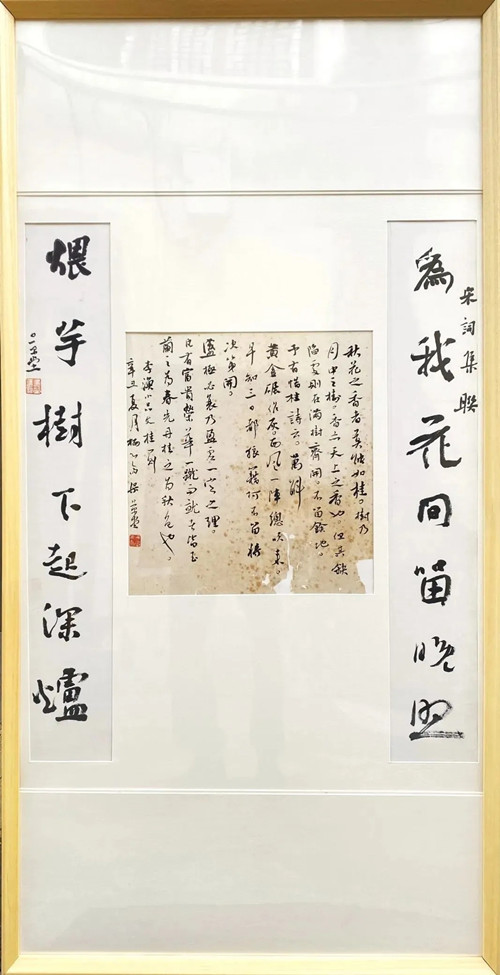 宋詞集聯
為我花間留晚照
秋花之香者莫能如桂。樹乃
月中之樹。香亦天上之香也。但其缺
陷處則在滿樹齊開。不留餘地。
予有惜桂詩云。萬斛
黃金碾作灰。西風一陣總吹來。
早知三日都狼藉何不留將
次第開。
盛極必衰乃盈虛一定之理。
凡有富貴榮華一蹴而就者皆玉
蘭之為春光丹桂之為秋色也。
李漁小品文桂
辛丑夏月
煨芋樹下起深爐